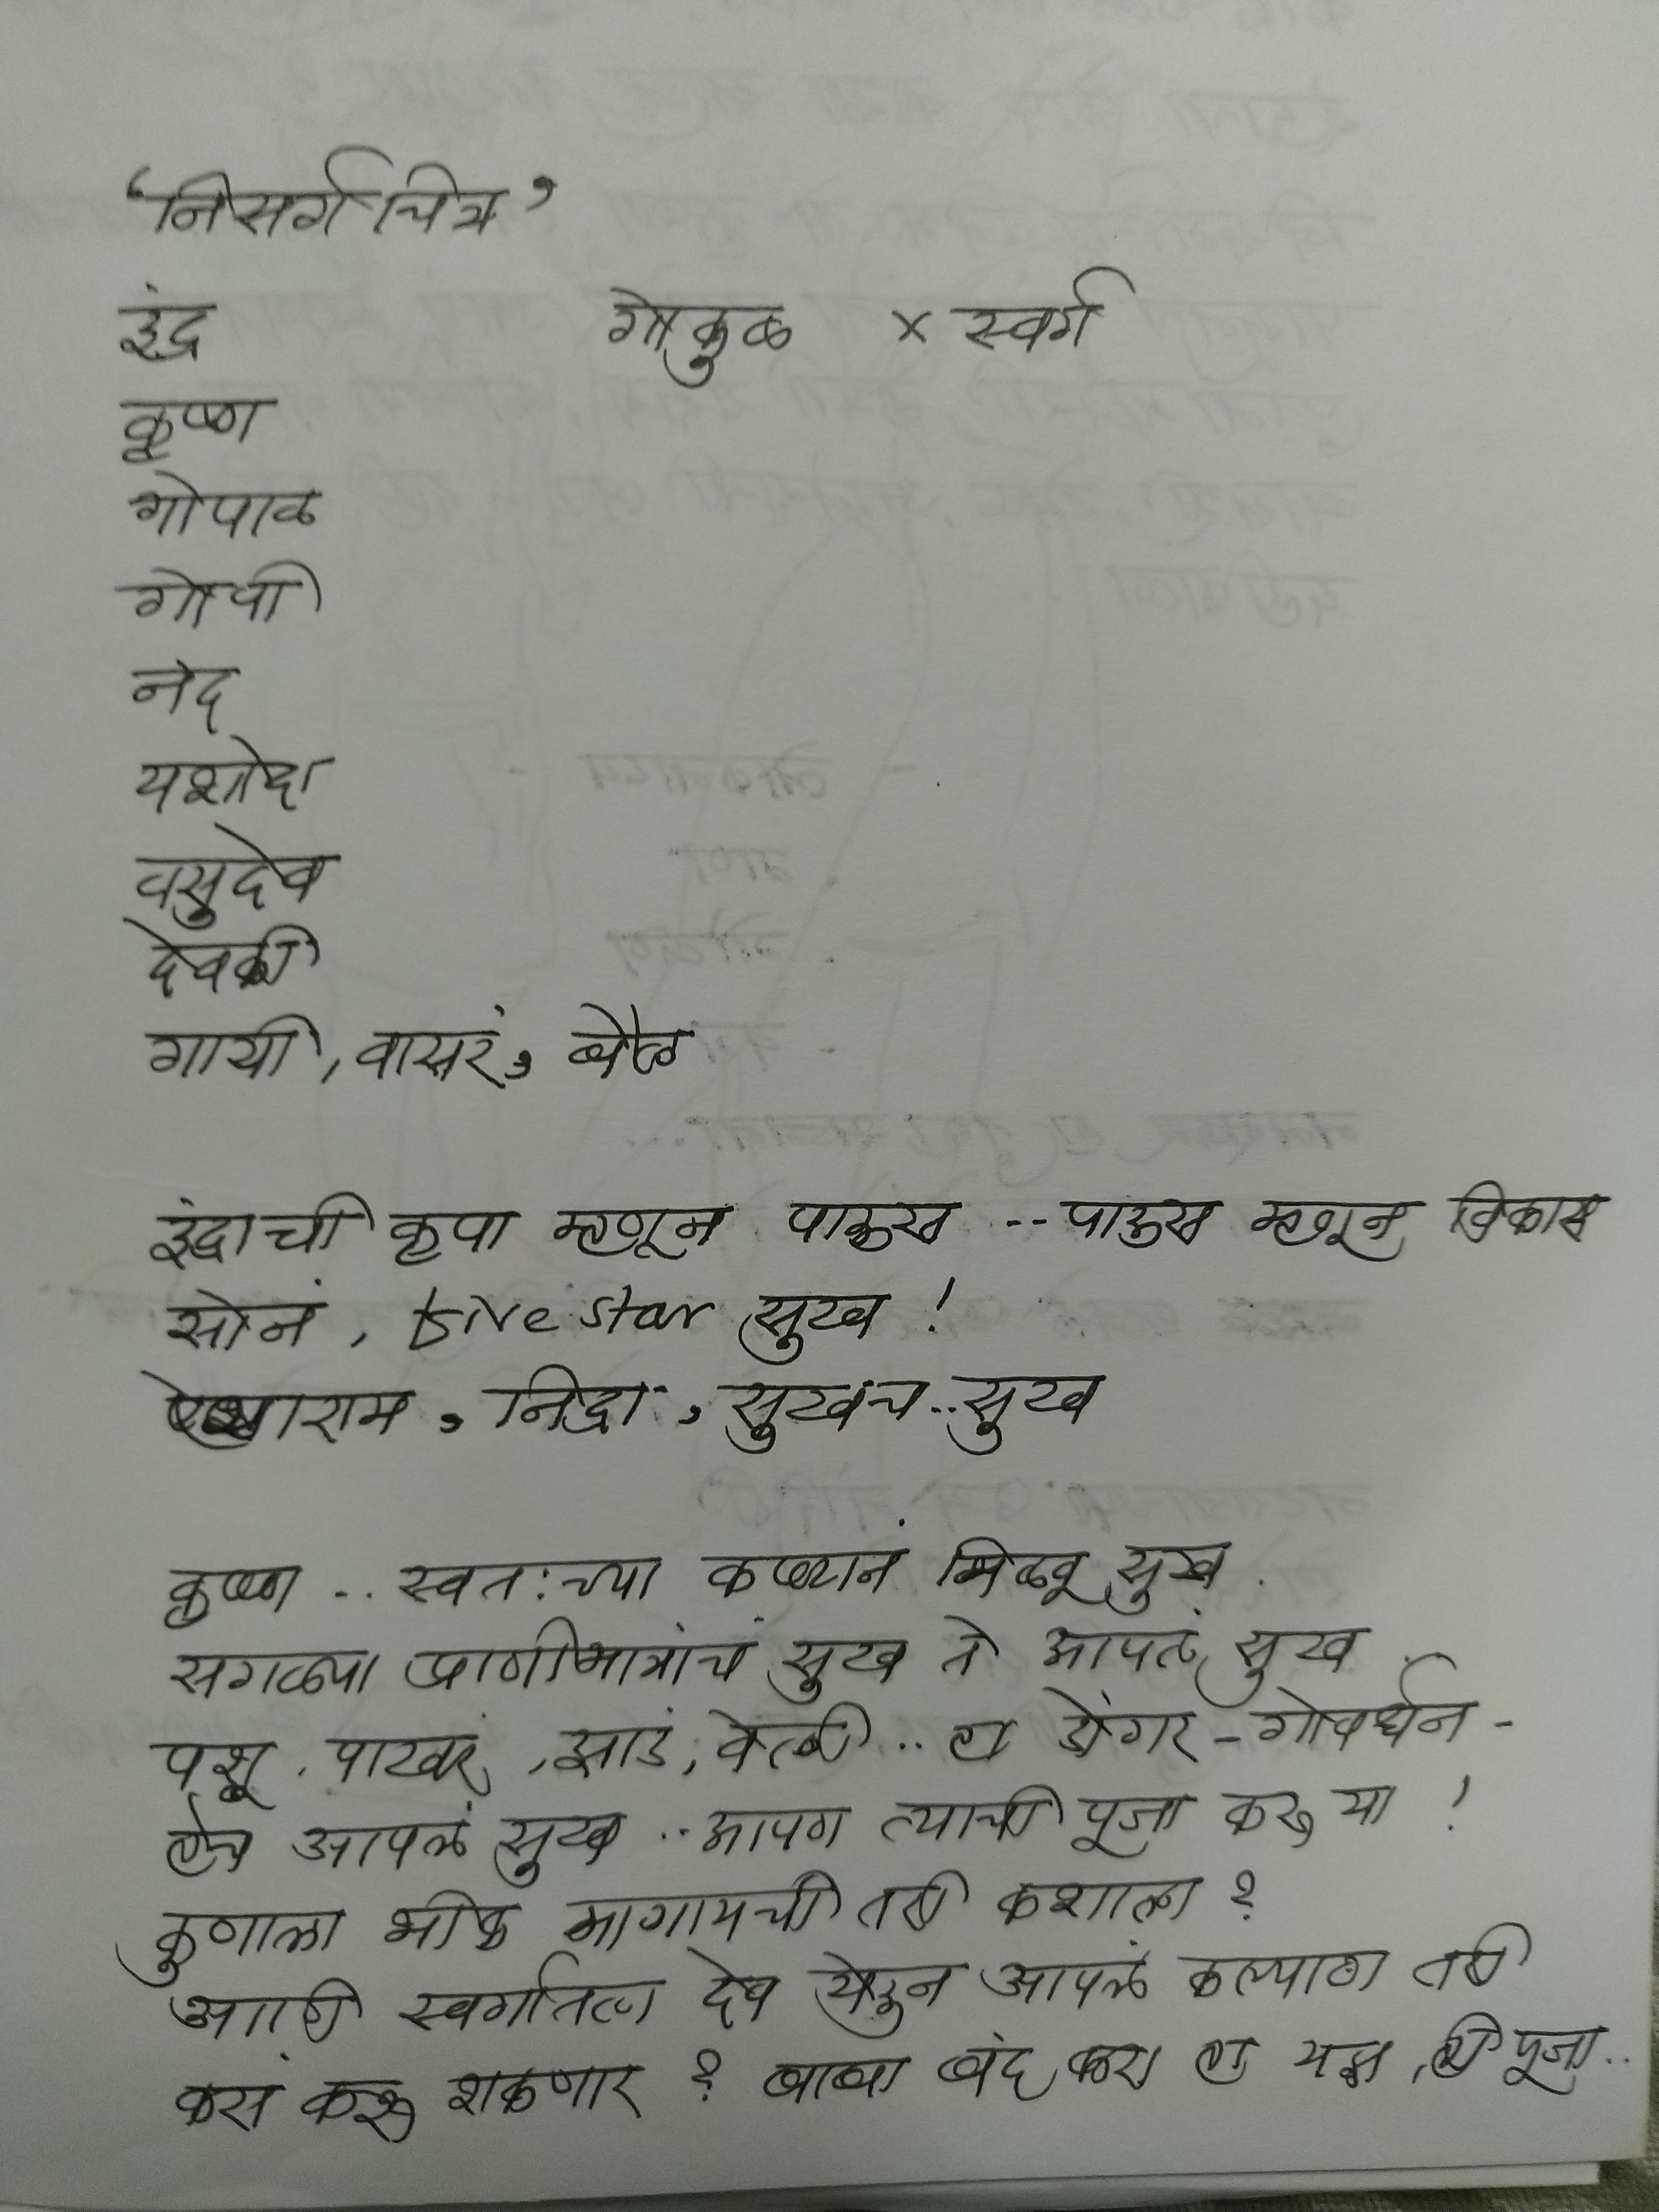 ‘निसर्गचित्र’
इंद्र गोकुळ x स्वर्ग
कृष्ण
गोपाळ
गोपी
नंद
यशोदा
वसुदेव
देवकी
गायी, वासरं, बैल
इंद्राची कृपा म्हणून पाऊस -- पाऊस म्हणून विकास
सोनं, five star सुख !
निद्रा, सुखंच.. सुख
कृष्ण .. स्वत:च्या कष्टानं मिळवू सुख.
सगळ्या प्राणीमात्रांचं सुख ते आपलं सुख.
पशू, पाखरं, झाडं, वेली.. हा डोंगर - गोवर्धन -
हेच आपलं सुख .. आपण त्याची पूजा करू या !
कुणाला भीक मागायची तरी कशाला ?
आणि स्वर्गातला देव येऊन आपलं कल्याण तरी
कसं करू शकणार ? बाबा बंद करा हा यज्ञ, ही पूजा..